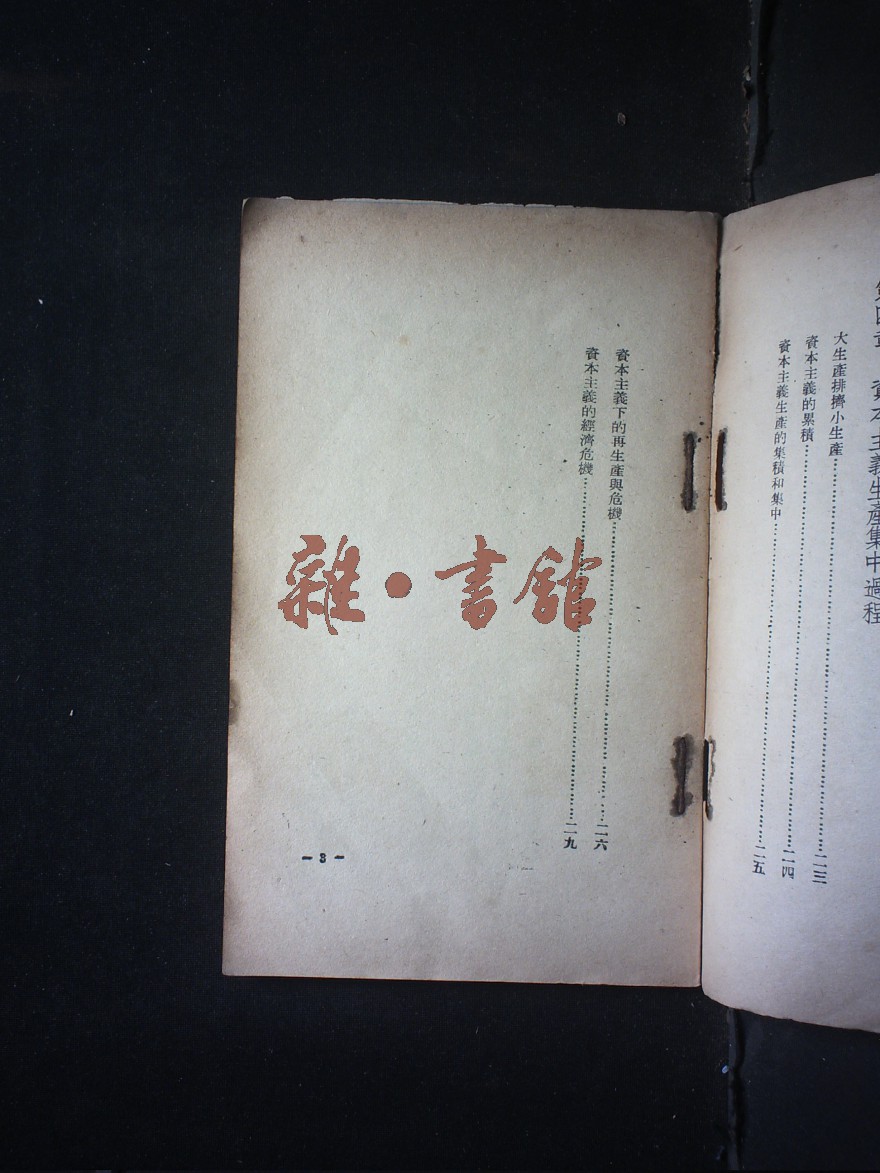 第四章 資本主義生產集中過程
大生產排擠小生產……二三
資本主義的累積……二四
資本主義生產的集積和集中……二五
資本主義下的再生產與危機……二六
資本主義的經濟危機……二九
— 3 —
雜·書館